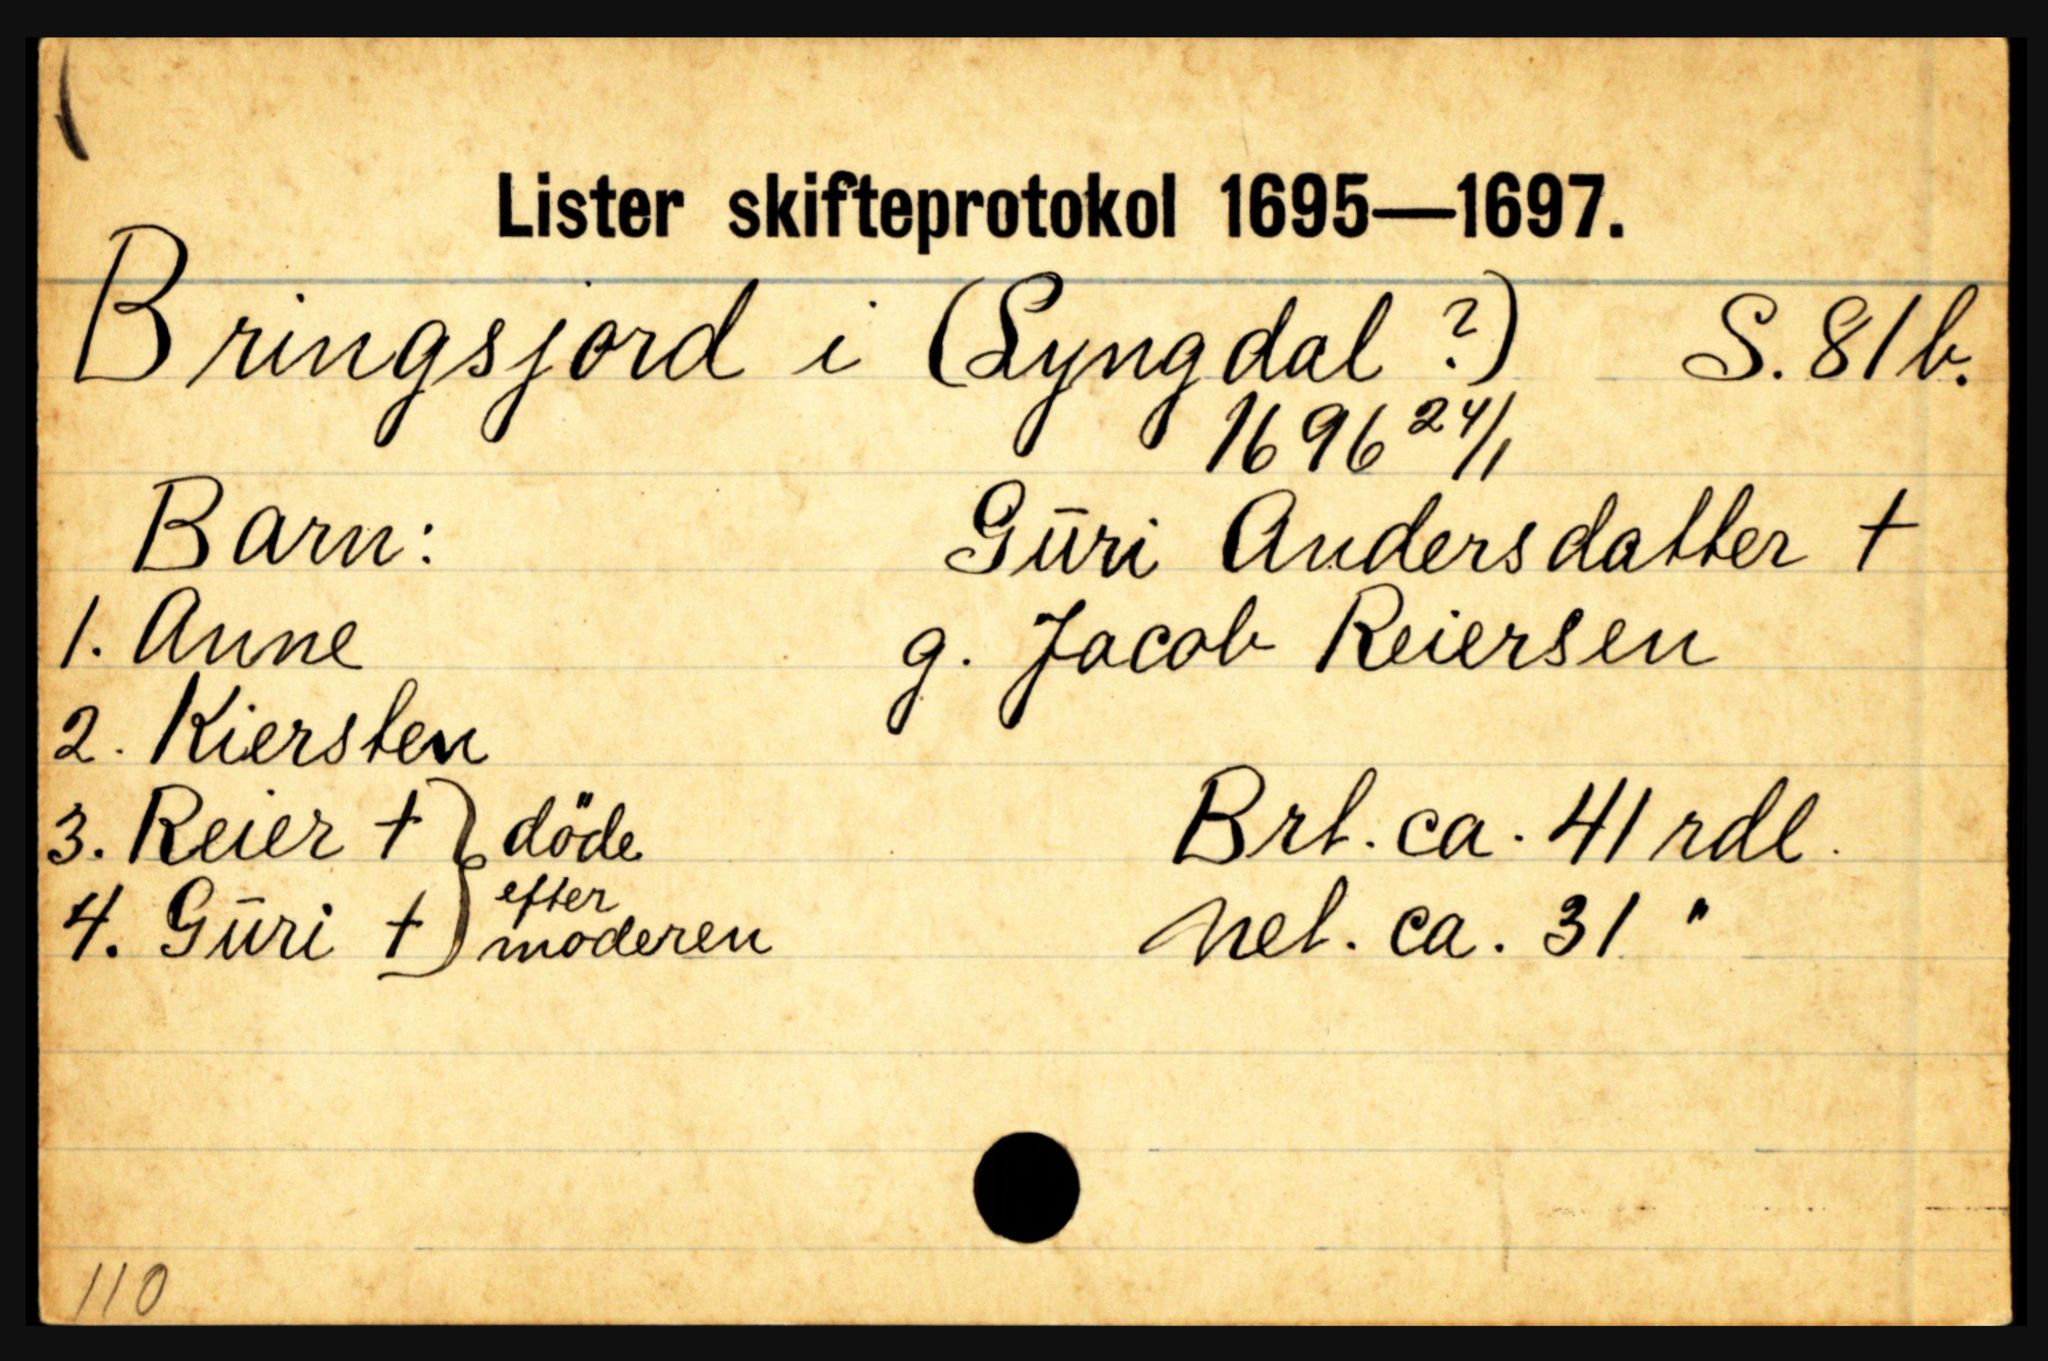 Lister skifteprotokol 1695—1697.
Bringsjord i (Lyngdal ?) S. 81b.
1696 24/1
Barn: Gūri Andersdatter †
1. Anne g. Jacob Reiersen
2. Kiersten
3. Reier † } döde Brt. ca. 41 rdl.
4. Gūri † } efter moderen Net. ca. 31 "
110